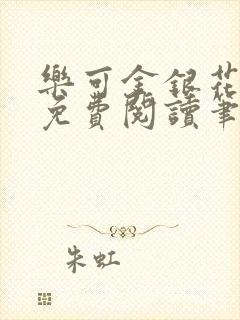 樂可金銀花
免費閱讀筆
朱虹